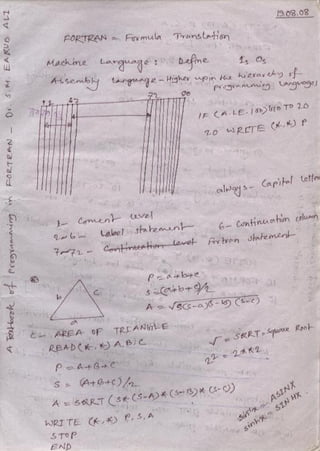 19.08.08
FORTRAN = Formula Translation
Machine Language : Define 1s 0s
Assembly language - Higher upon the hierarchy of
programming languages
1 67 72 80
IF (A.LE.100) GO TO 20
20 WRITE (*,*) P
always - Capital letter
1 - Coment level
2~6 - Label statement
6 - Continuation column
7~72 - Fortran statement
P = a+b+c
S = (a+b+c)/2
A = √s(s-a)(s-b)(s-c)
b c
a
C - AREA OF TRIANGLE
READ (*,*) A,B,C
P = A+B+C
S = (A+B+C)/2
A = SQRT (S*(S-A)*(S-B)*(S-C))
WRITE (*,*) P, S, A
STOP
END
√ = SQRT, Square Root
2² = 2**2
sin⁻¹x = ASINX
sinhx = SINHX
A Textbook of Programming in FORTRAN - Dr. S.M.